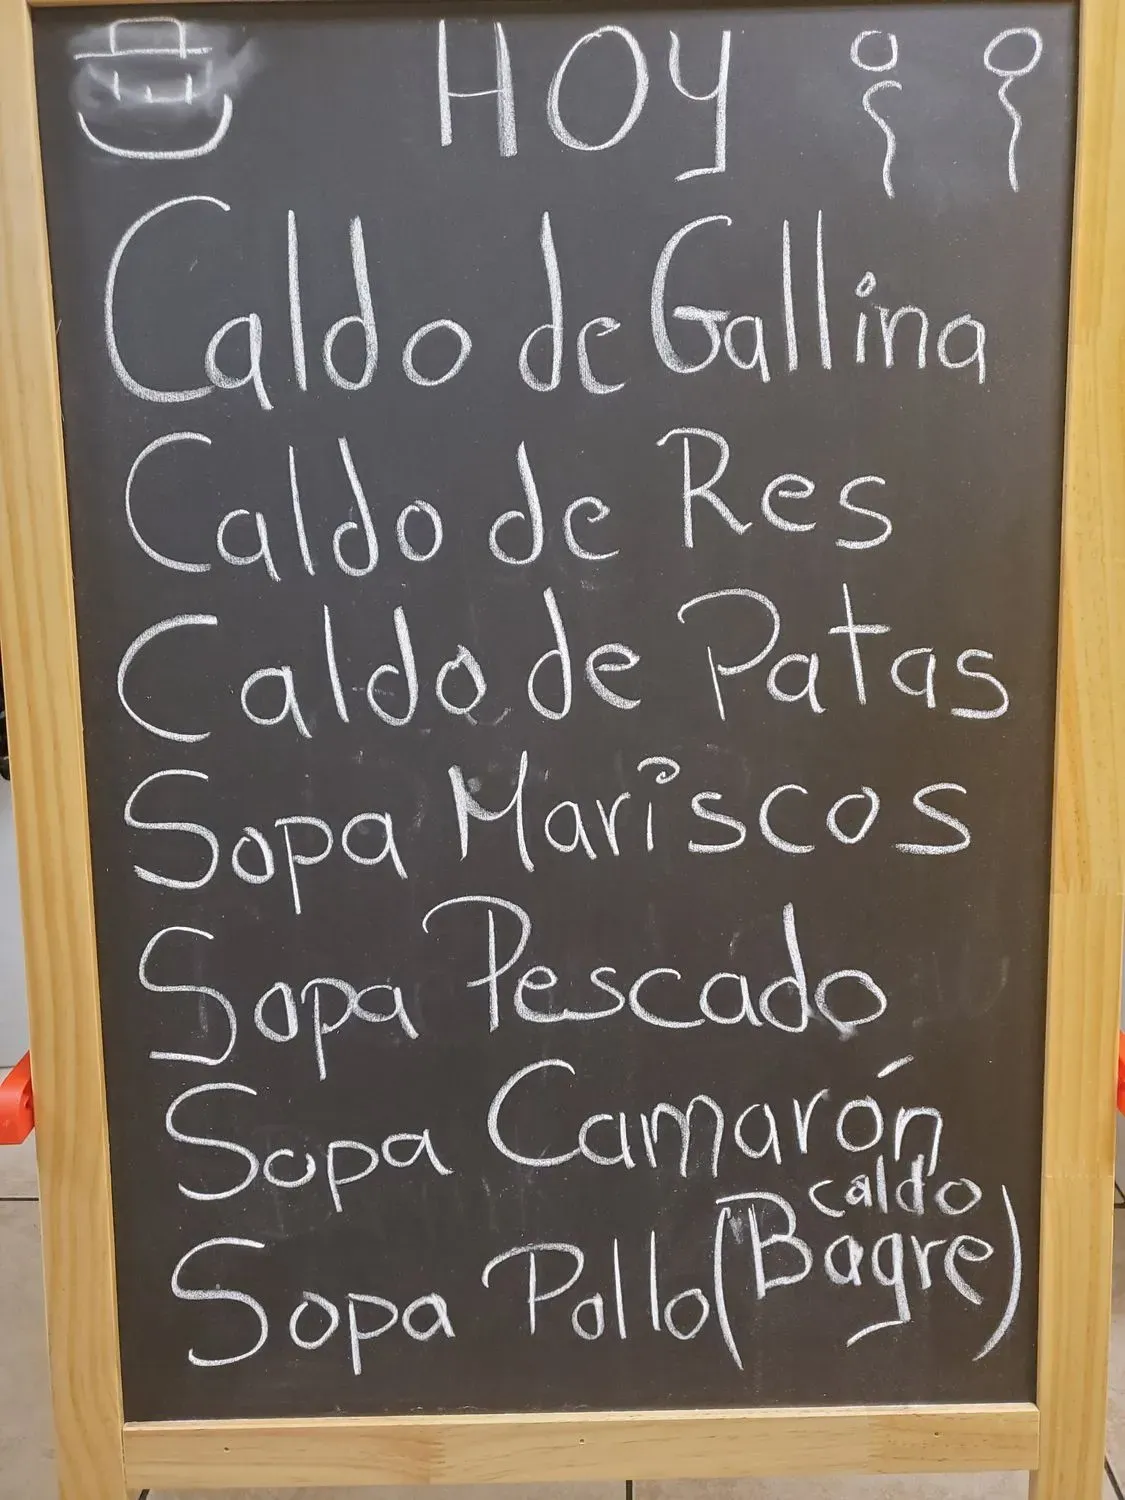 HOY
Caldo de Gallina
Caldo de Res
Caldo de Patas
Sopa Mariscos
Sopa Pescado
Sopa Camarón
caldo
Sopa Pollo (Bagre)